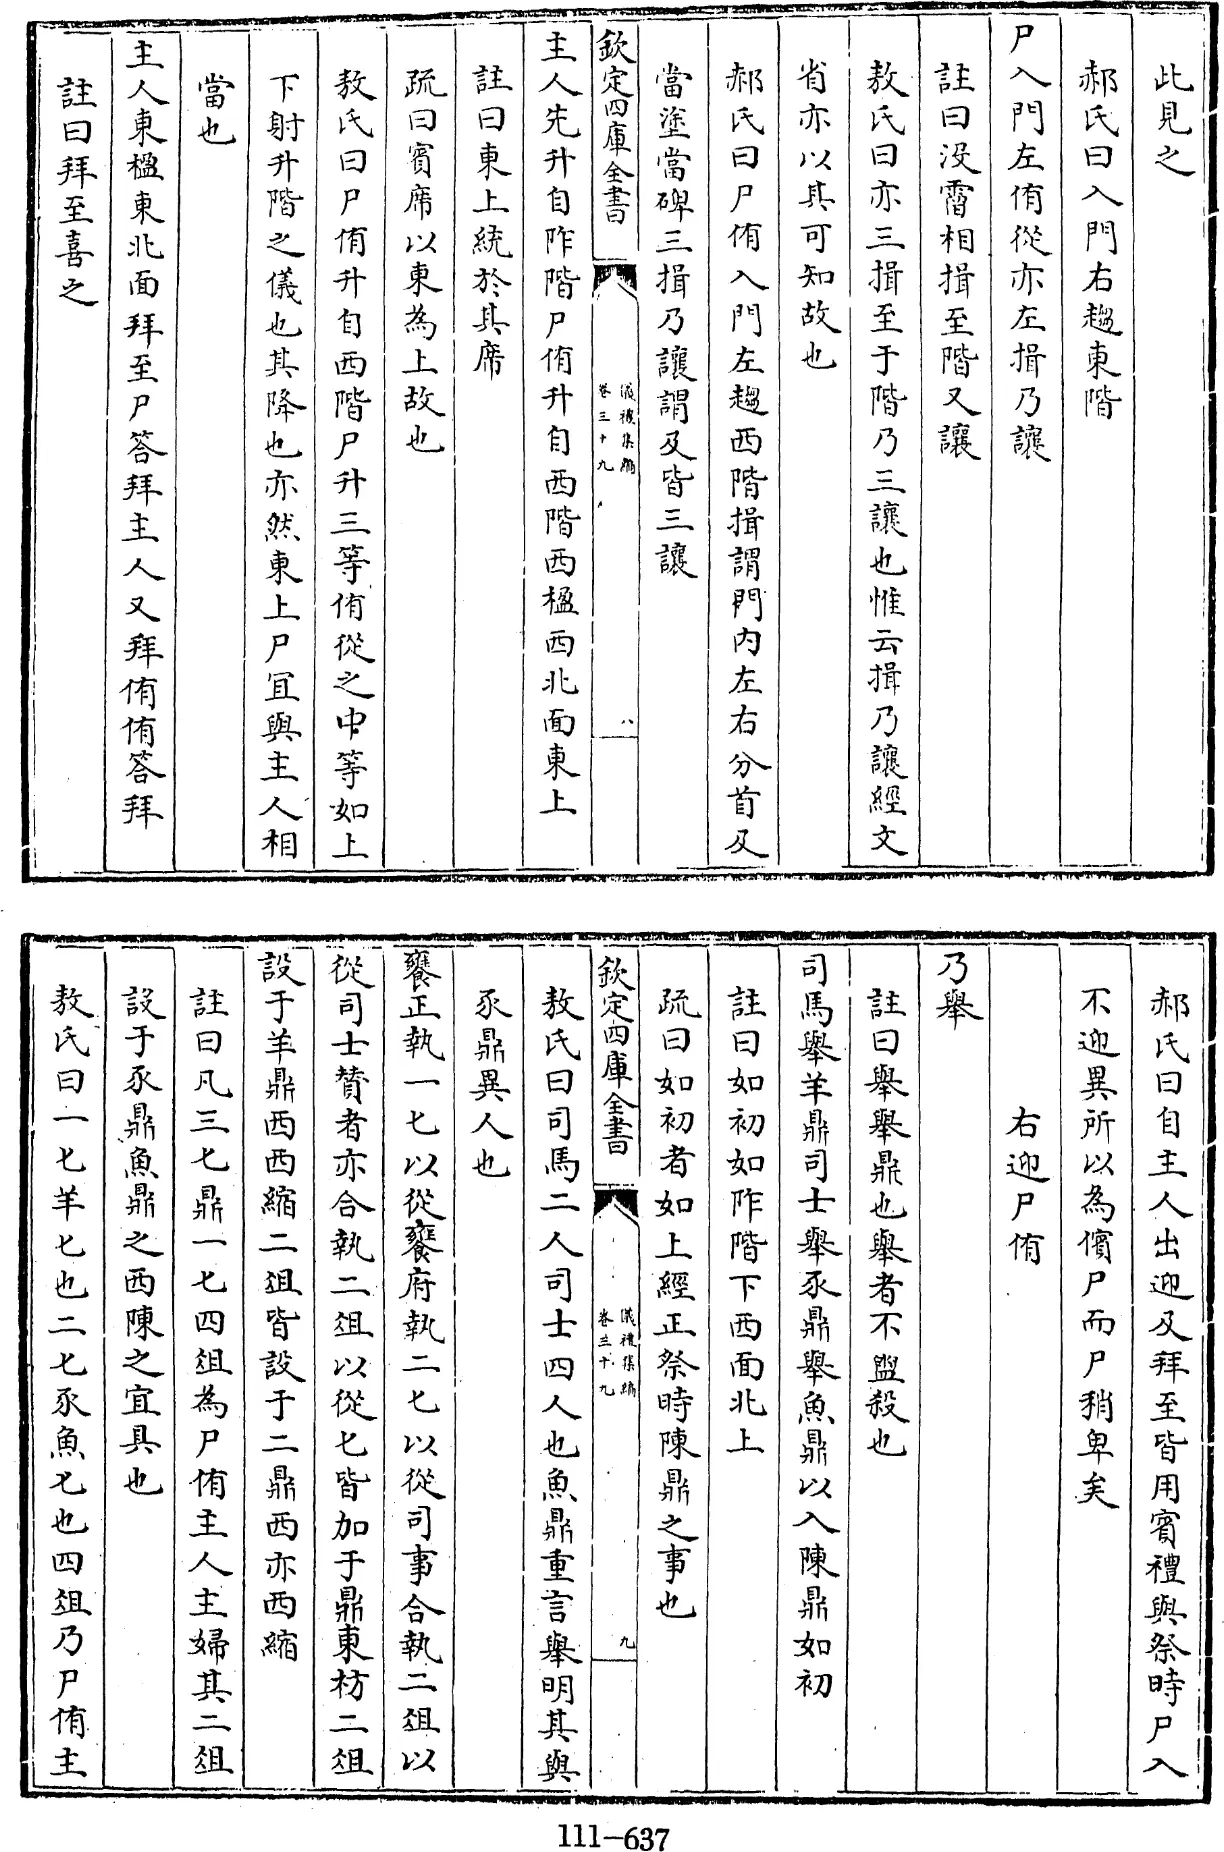 此見之
郝氏曰入門右趨東階
尸入門左侑從亦左揖乃讓
註曰没霤相揖至階又讓
敖氏曰亦三揖至于階乃三讓也惟云揖乃讓經文
省亦以其可知故也
郝氏曰尸侑入門左趨西階揖謂門内左右分首及
當塗當碑三揖乃讓謂及皆三讓
欽定四庫全書
儀禮集編
卷三十九
八
主人先升自阼階尸侑升自西階西楹西北面東上
註曰東上統於其席
疏曰賓席以東為上故也
敖氏曰尸侑升自西階尸升三等侑從之中等如上
下射升階之儀也其降也亦然東上尸冝與主人相
當也
主人東楹東北面拜至尸答拜主人又拜侑侑答拜
註曰拜至喜之
郝氏曰自主人出迎及拜至皆用賓禮與祭時尸入
不迎異所以為儐尸而尸稍卑矣
右迎尸侑
乃舉
註曰舉舉鼎也舉者不盥殺也
司馬舉羊鼎司士舉豕鼎舉魚鼎以入陳鼎如初
註曰如初如阼階下西面北上
疏曰如初者如上經正祭時陳鼎之事也
欽定四庫全書
儀禮集編
卷三十九
九
敖氏曰司馬二人司士四人也魚鼎重言舉明其與
豕鼎異人也
饔正執一匕以從饔府執二匕以從司事合執二俎以
從司士贊者亦合執二俎以從匕皆加于鼎東枋二俎
設于羊鼎西西縮二俎皆設于二鼎西亦西縮
註曰凡三匕鼎一匕四俎為尸侑主人主婦其二俎
設于豕鼎魚鼎之西陳之宜具也
敖氏曰一匕羊匕也二匕豕魚匕也四俎乃尸侑主
111-637